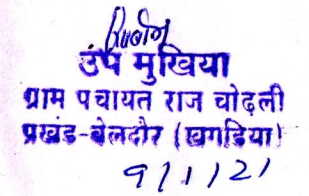 उप मुखिया
ग्राम पचायत राज चोढ़ली
प्रखंड-बेलदौर (खगडिया)
9/1/21